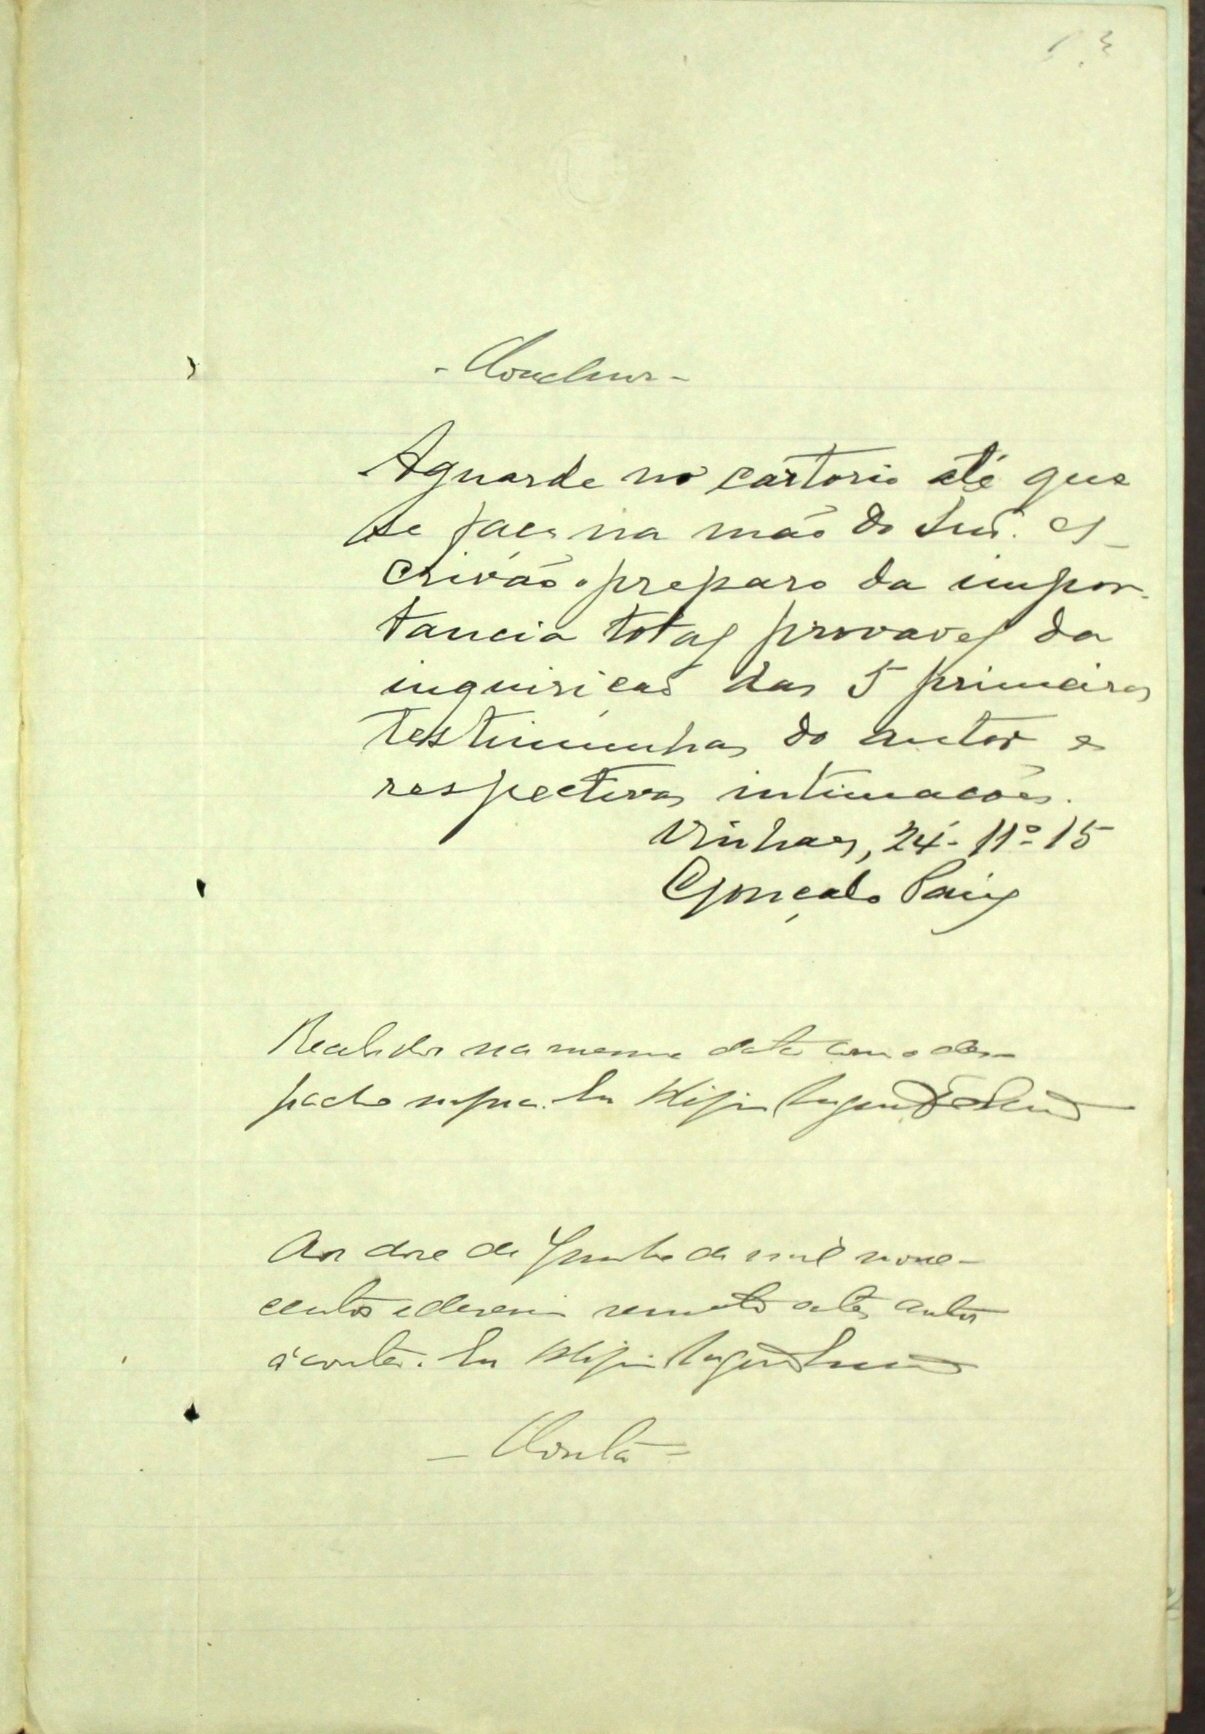 - Conclusos -
Aguarde no cartorio até que
se faça na mão do Snr. es-
crivão o preparo da impor-
tancia total provavel da
inquirição das 5 primeiras
testimunhas do autor e
respectivas intimacões.
Vinhaes, 24-11º-15
Gonçalo Paiz
Recebidos na mesma data com o des-
pacho supra. Eu
Aos doze de Junho de mil nove-
centos e deseseis remeto estes autos
á conta. Eu
- Conta =